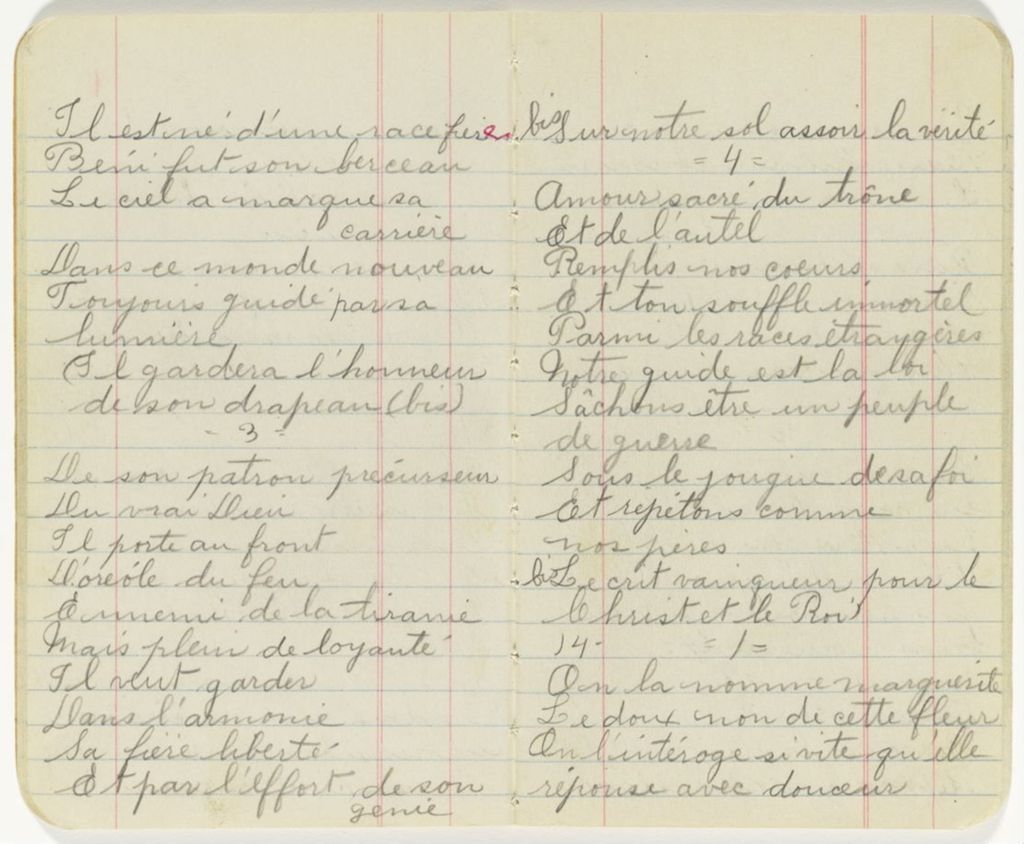 Il est né d'une race fière
Beni fut son berceau
Le ciel a marque sa
carrière
Dans ce monde nouveau
Toujours guidé par sa
lumière
(Il gardera l'honneur
de son drapeau (bis)
- 3 =
De son patron précurseur
Du vrai Dieu
Il porte au front
L'oreóle du feu
Ennemi de la tiranie
Mais plein de loyauté
Il veut garder
Dans l'armonie
Sa fière liberté
Et par l'effort de son
genie
bis Sur notre sol assoir la vérité
= 4 =
Amour sacré du trône
Et de l'autel
Remplis nos coeurs
Et ton souffle immortel
Parmi les races étraygères
Notre guide est la loi
Sâchons être un peuple
de guerre
Sous le jougue de sa foi
Et répétons comme
nos pères
bis Le crit vainqueur pour le
Christ et le Roi
14- = 1 =
On la nomme marguerite
Le doux non de cette fleur
On l'intéroge si vite qu'elle
réponse avec douceur